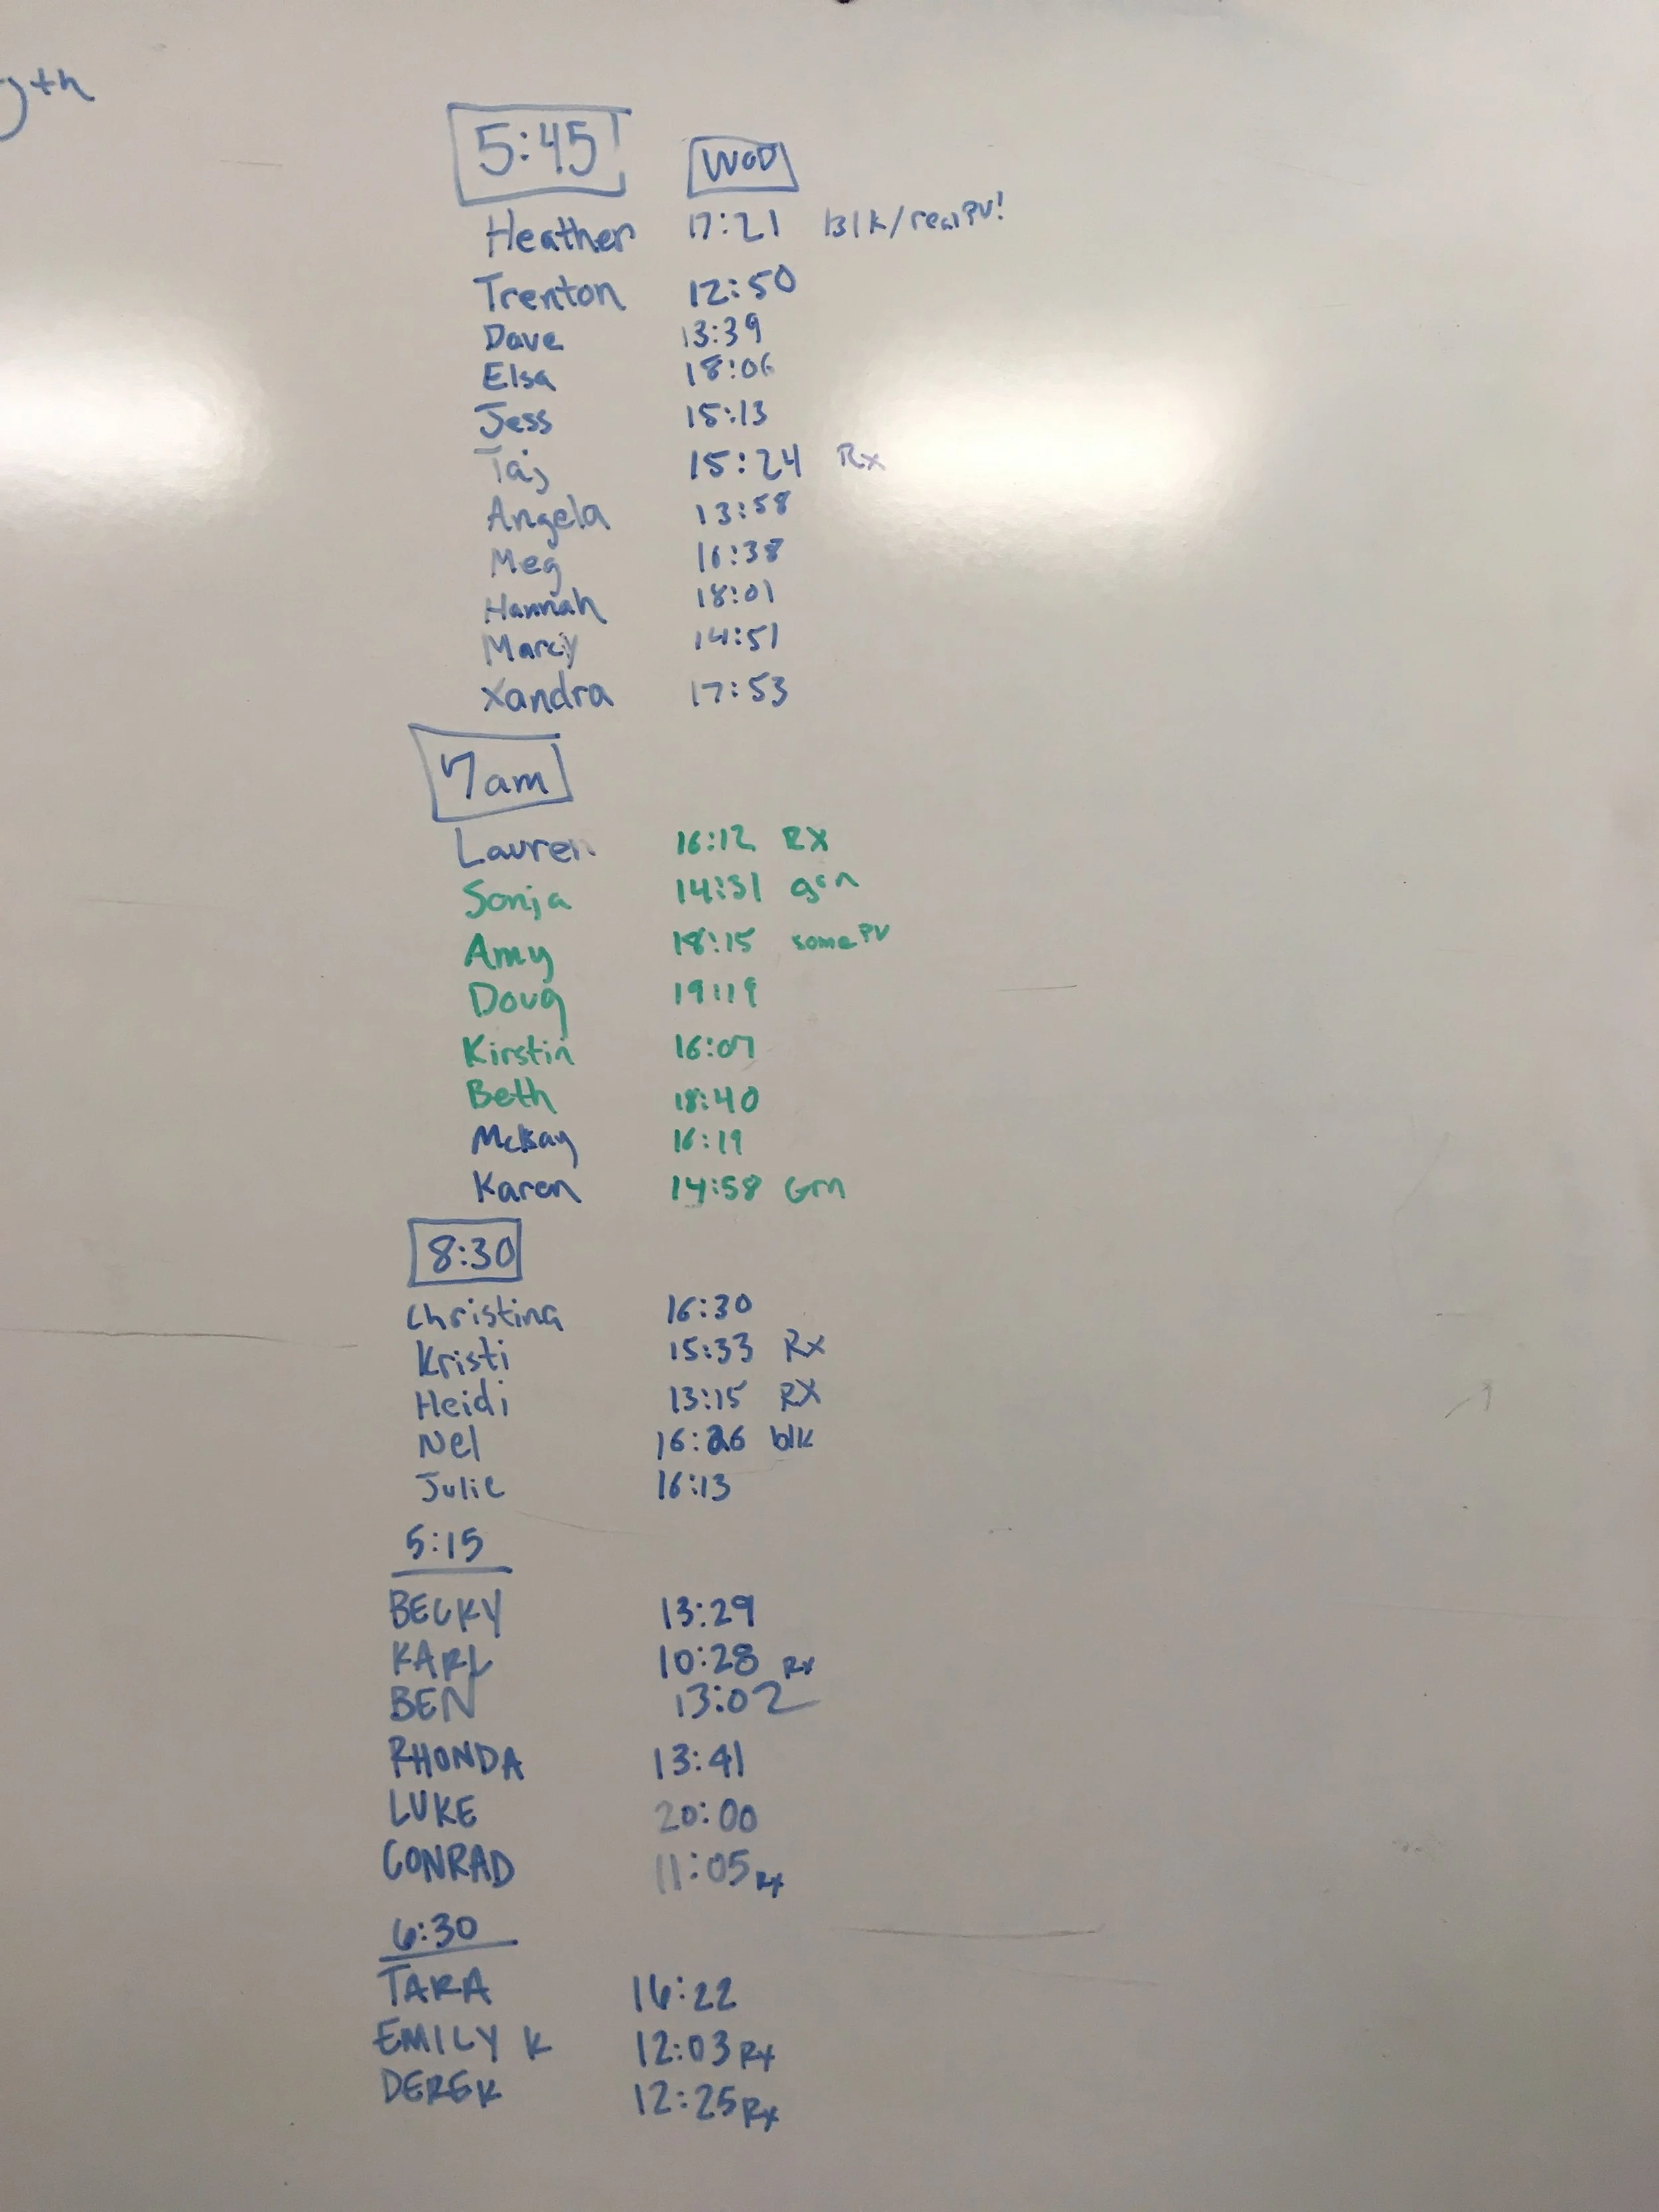 gth
5:45 WOD
Heather 17:21 blk/real PU!
Trenton 12:50
Dave 13:39
Elsa 18:06
Jess 15:13
Taj 15:24 Rx
Angela 13:58
Meg 16:38
Hannah 18:01
Marcy 14:51
Xandra 17:53
7am
Lauren 16:12 RX
Sonja 14:31 grn
Amy 18:15 some PU
Doug 19:19
Kirstin 16:07
Beth 18:40
McKay 16:19
Karen 14:58 Grn
8:30
Christina 16:30
Kristi 15:33 Rx
Heidi 13:15 RX
Nel 16:26 blk
Julie 16:13
5:15
BECKY 13:29
KARL 10:28 Rx
BEN 13:02
RHONDA 13:41
LUKE 20:00
CONRAD 11:05 Rx
6:30
TARA 16:22
EMILY K 12:03 Rx
DEREK 12:25 Rx